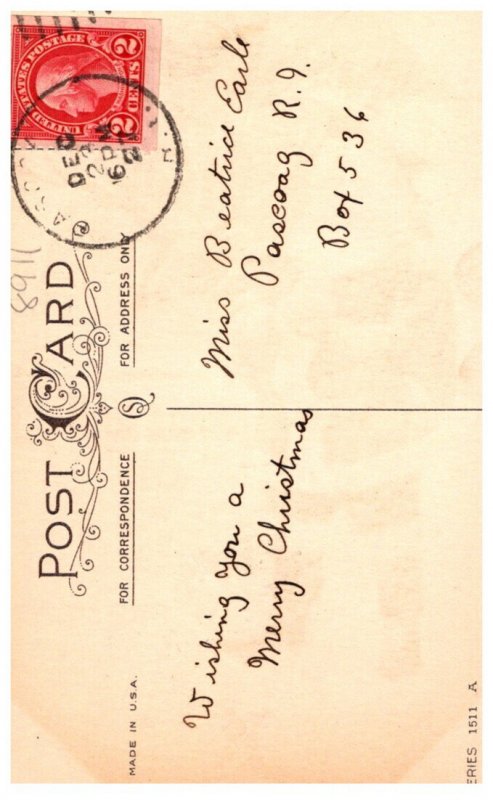 POST CARD
FOR CORRESPONDENCE
FOR ADDRESS ONLY
UNITED STATES POSTAGE
2 CENTS 2
DEC
6 PM
8911
Wishing you a
Merry Christmas
Miss Beatrice Earle
Pascoag R.I.
Box 536
MADE IN U.S.A.
ERIES 1511 A